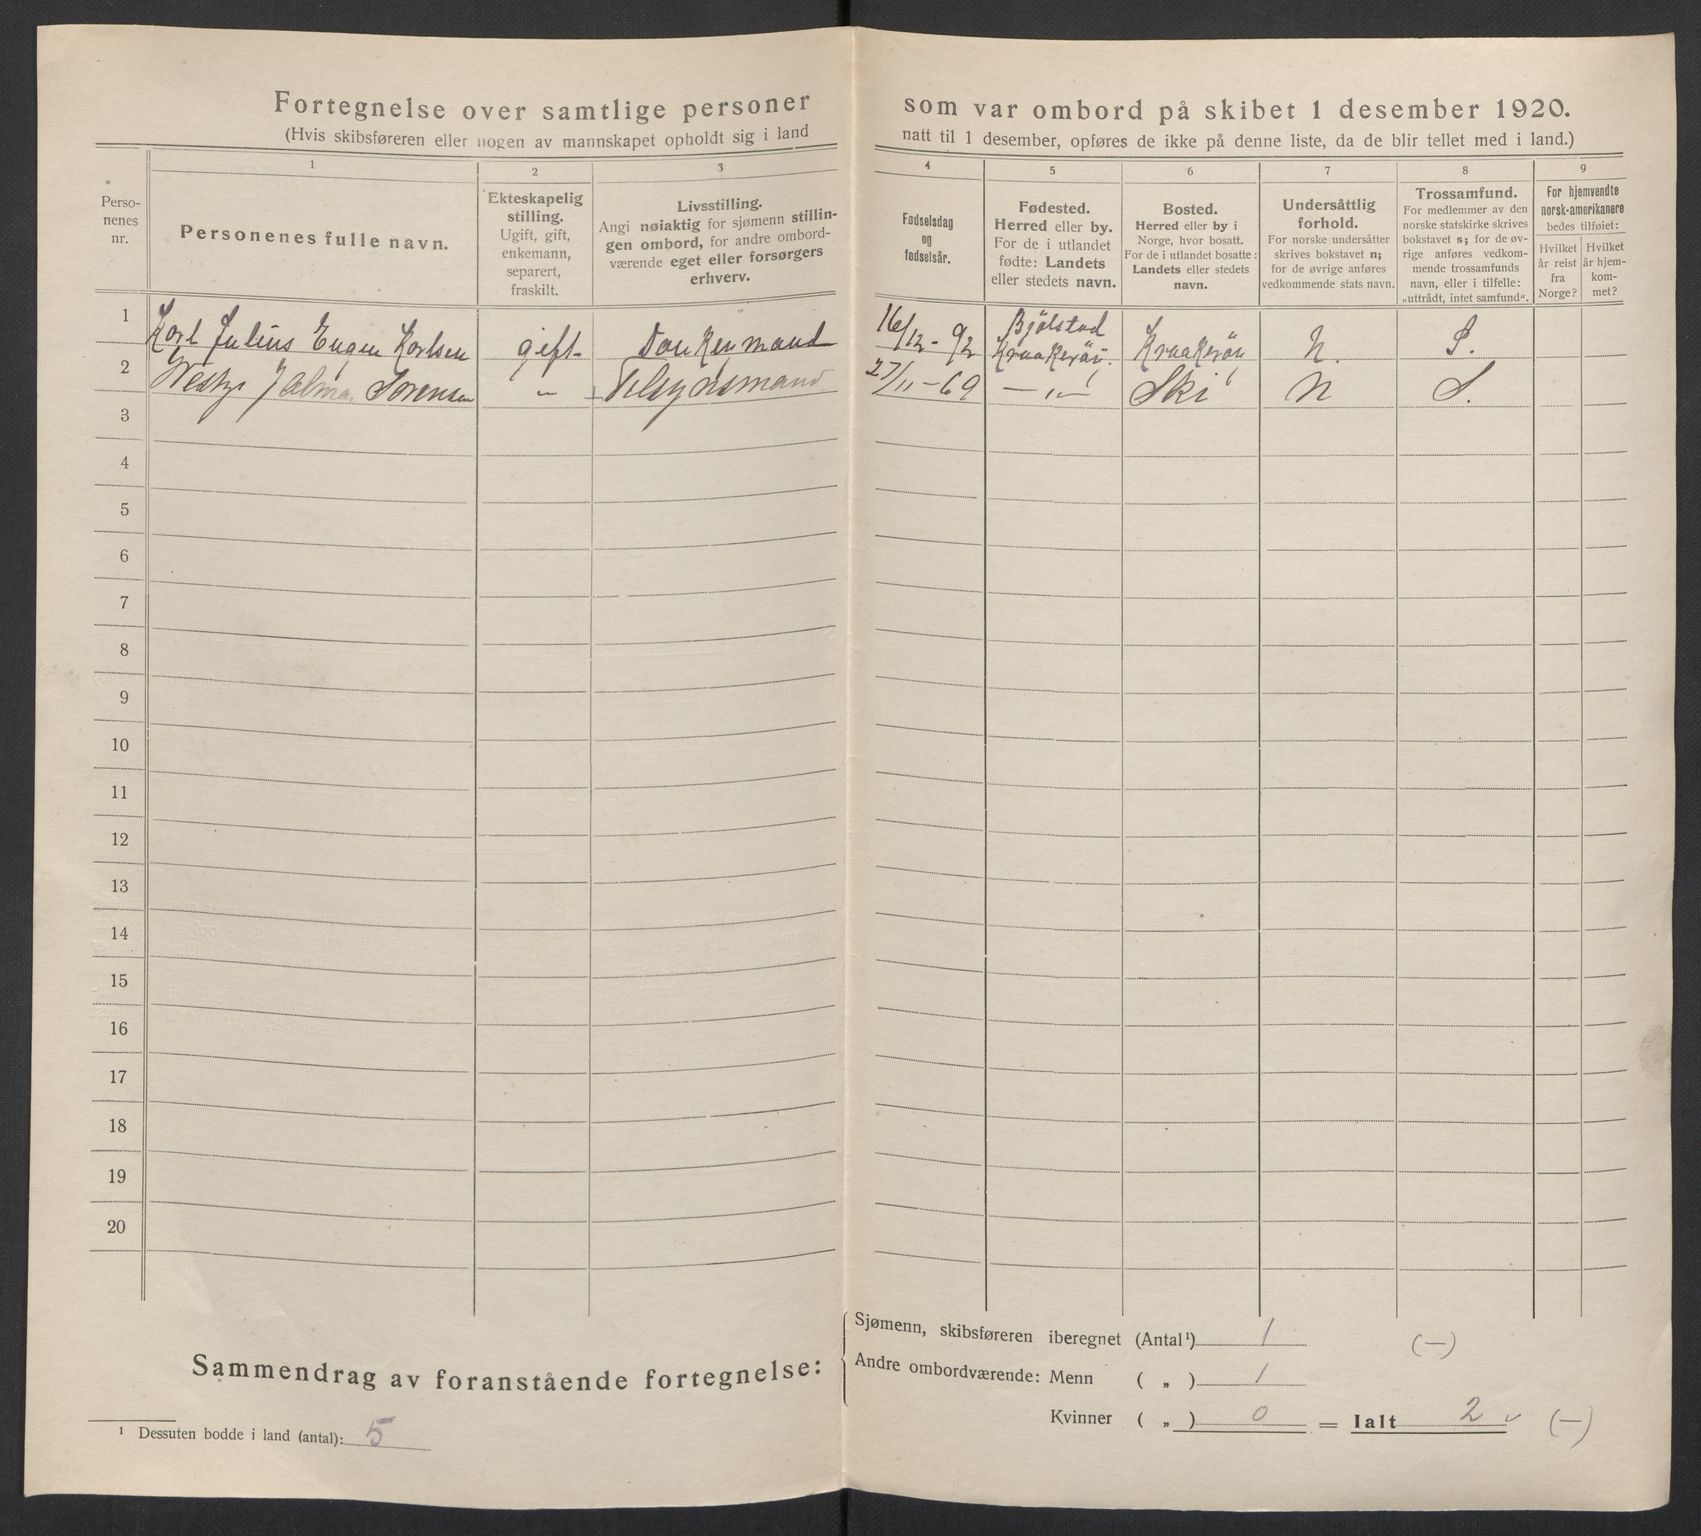 Fortegnelse over samtlige personer som var ombord på skibet 1 desember 1920.
(Hvis skibsføreren eller nogen av mannskapet opholdt sig i land natt til 1 desember, opføres de ikke på denne liste, da de blir tellet med i land.)
Personenes nr.
1
Personenes fulle navn.
2
Ekteskapelig stilling.
Ugift, gift, enkemann, separert, fraskilt.
3
Livsstilling.
Angi nøiaktig for sjømenn stillingen ombord, for andre ombordværende eget eller forsørgers erhverv.
4
Fødselsdag og fødselsår.
5
Fødested.
Herred eller by.
For de i utlandet fødte: Landets eller stedets navn.
6
Bosted.
Herred eller by i Norge, hvor bosatt.
For de i utlandet bosatte: Landets eller stedets navn.
7
Undersåttlig forhold.
For norske undersåtter skrives bokstavet n; for de øvrige anføres vedkommende stats navn.
8
Trossamfund.
For medlemmer av den norske statskirke skrives bokstavet s; for de øvrige anføres vedkommende trossamfunds navn, eller i tilfelle: „uttrådt, intet samfund“.
9
For hjemvendte norsk-amerikanere bedes tilføiet:
Hvilket år reist fra Norge?
Hvilket år hjemkommet?
1 Karl Julius Eugen Karlsen gift Donkeymand 16/12-92 Bjölstad Kraakeröy Kraakeröy N. S.
2 Jalmar Sörensen — „ — 27/11-69 — „ — Ski N S.
3
4
5
6
7
8
9
10
11
12
13
14
15
16
17
18
19
20
Sammendrag av foranstående fortegnelse:
Sjømenn, skibsføreren iberegnet (Antal¹) 1 (—)
Andre ombordværende: Menn ( „ ) 1
Kvinner ( „ ) 0 = Ialt 2 (—)
¹ Dessuten bodde i land (antal): 5